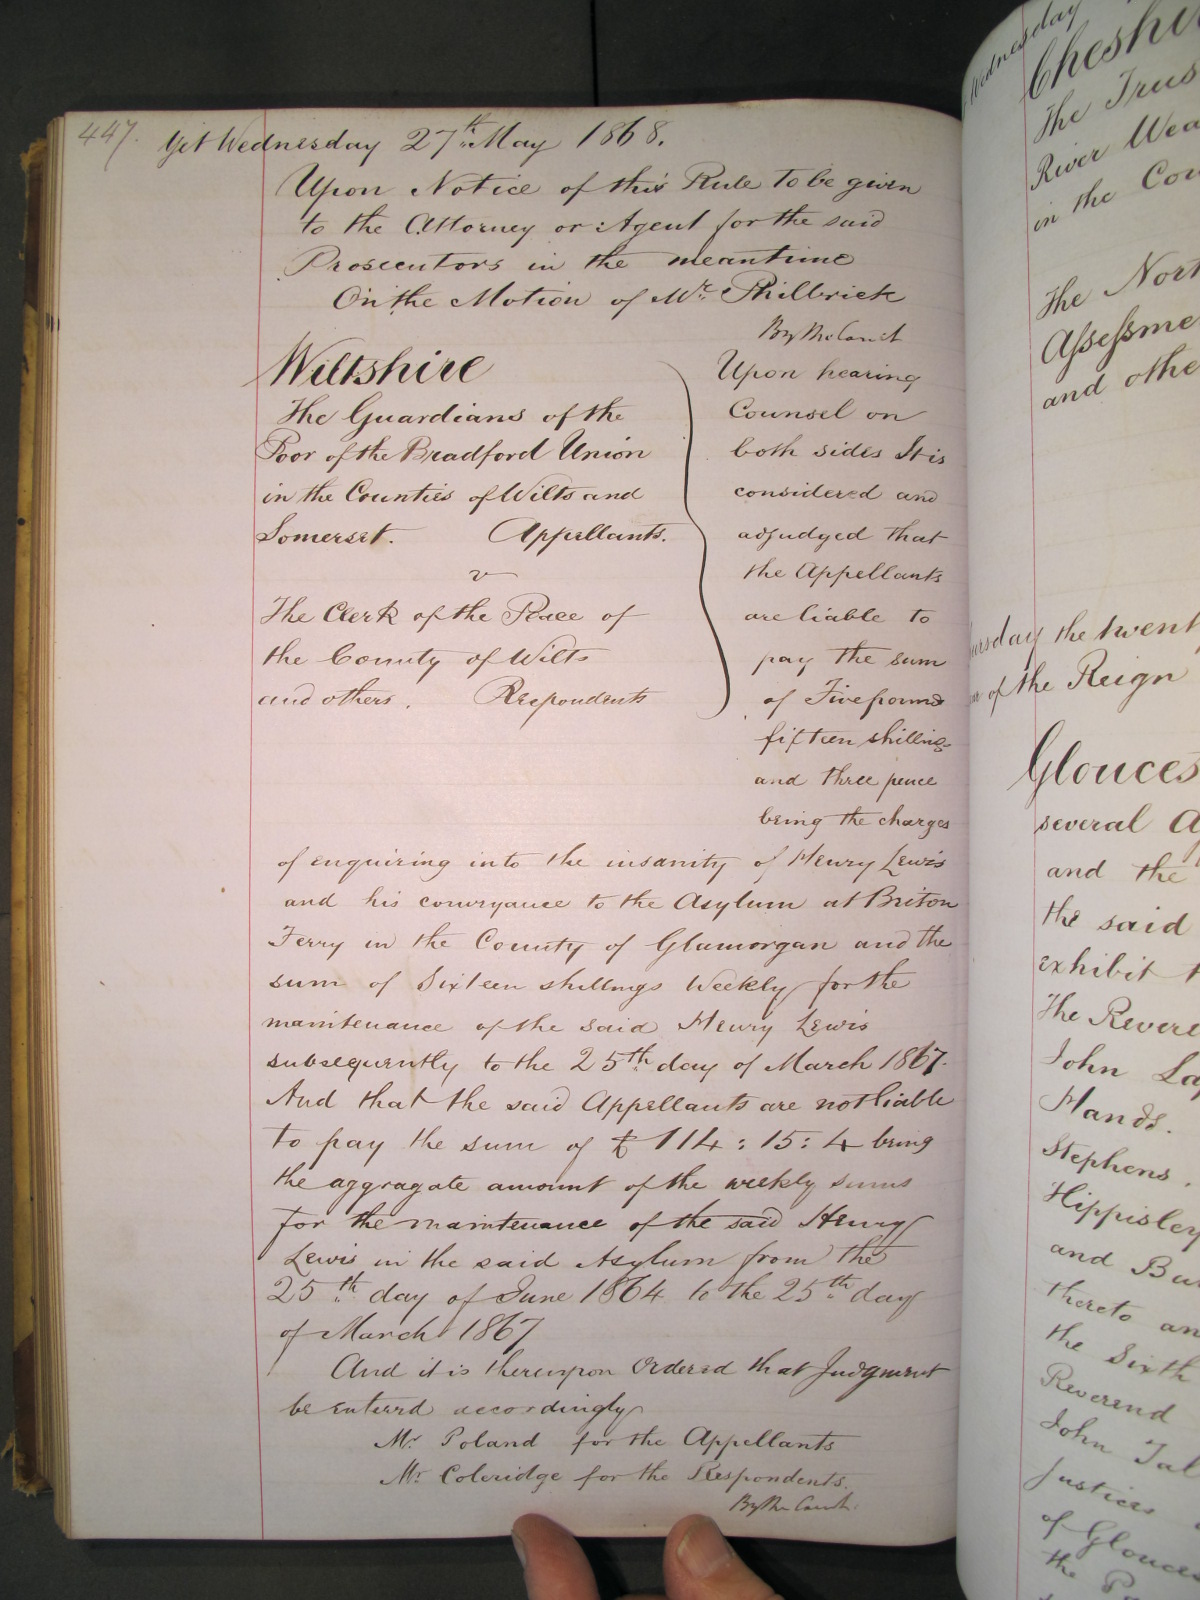 447.
Yet Wednesday 27th May 1868.
Upon Notice of this Rule to be given
to the Attorney or Agent for the said
Prosecutors in the meantime
On the Motion of Mr. Philbrick
By the Court
Wiltshire
The Guardians of the
Poor of the Bradford Union
in the Counties of Wilts and
Somerset. Appellants.
v
The Clerk of the Peace of
the County of Wilts
and others. Respondents
Upon hearing
Counsel on
both sides It is
considered and
adjudged that
the Appellants
are liable to
pay the sum
of Five pounds
fifteen shillings
and three pence
being the charges
of enquiring into the insanity of Henry Lewis
and his conveyance to the Asylum at Briton
Ferry in the County of Glamorgan and the
sum of Sixteen shillings Weekly for the
maintenance of the said Henry Lewis
subsequently to the 25th day of March 1867.
And that the said Appellants are not liable
to pay the sum of £114:15:4 being
the aggragate amount of the weekly sums
for the maintenance of the said Henry
Lewis in the said Asylum from the
25th day of June 1864 to the 25th day
of March 1867
And it is thereupon Ordered that Judgment
be entered accordingly
Mr Poland for the Appellants
Mr Coleridge for the Respondents.
By the Court.
Wednesday
Cheshi
The Trus
River Wea
in the Cou
The Nort
Assessme
and othe
ursday the twent
of the Reign
Glouces
several A
and the
the said
exhibit t
The Revere
John La
Hands.
Stephens.
Hippisley
and Bu
thereto an
the Sixth
Reverend
John Tal
Justices
of Glouces
the P